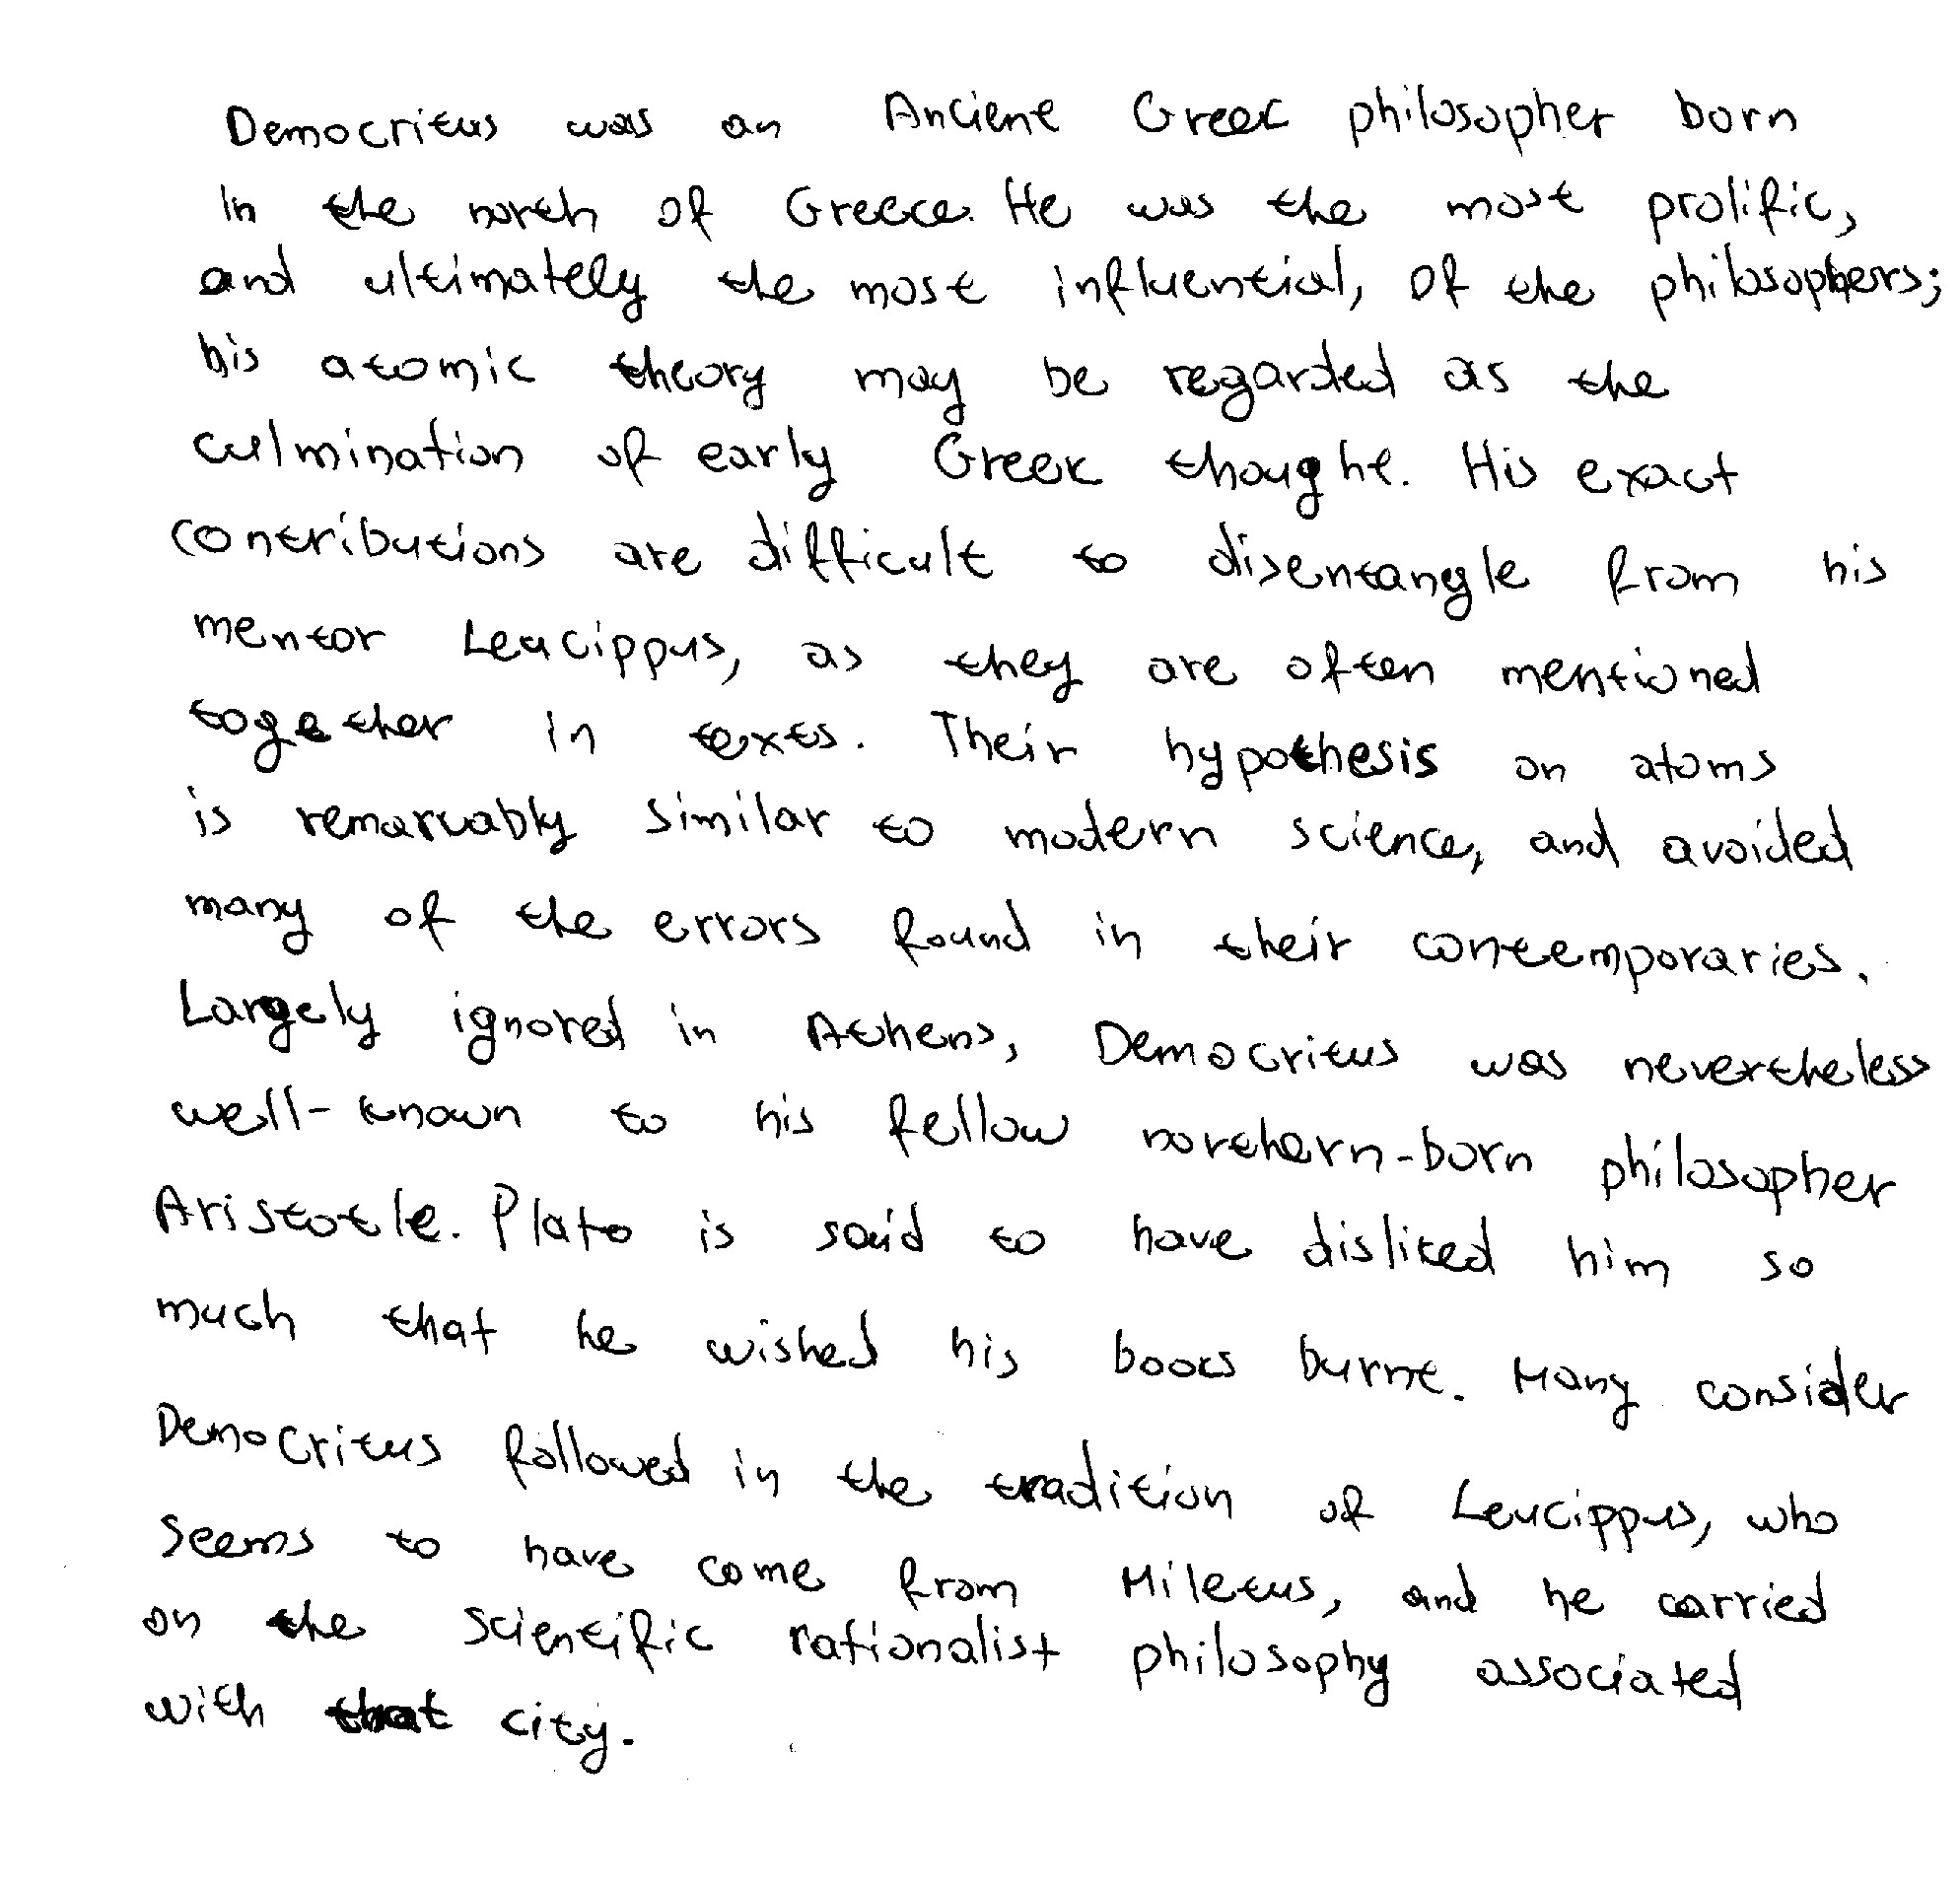 Democritus was an Ancient Greek philosopher born
in the north of Greece. He was the most prolific,
and ultimately the most influential, of the philosophers;
his atomic theory may be regarded as the
culmination of early Greek thought. His exact
contributions are difficult to disentangle from his
mentor Leucippus, as they are often mentioned
together in texts. Their hypothesis on atoms
is remarkably similar to modern science, and avoided
many of the errors found in their contemporaries.
Largely ignored in Athens, Democritus was nevertheless
well-known to his fellow northern-born philosopher
Aristotle. Plato is said to have disliked him so
much that he wished his books burnt. Many consider
Democritus followed in the tradition of Leucippus, who
seems to have come from Miletus, and he carried
on the scientific rationalist philosophy associated
with that city.